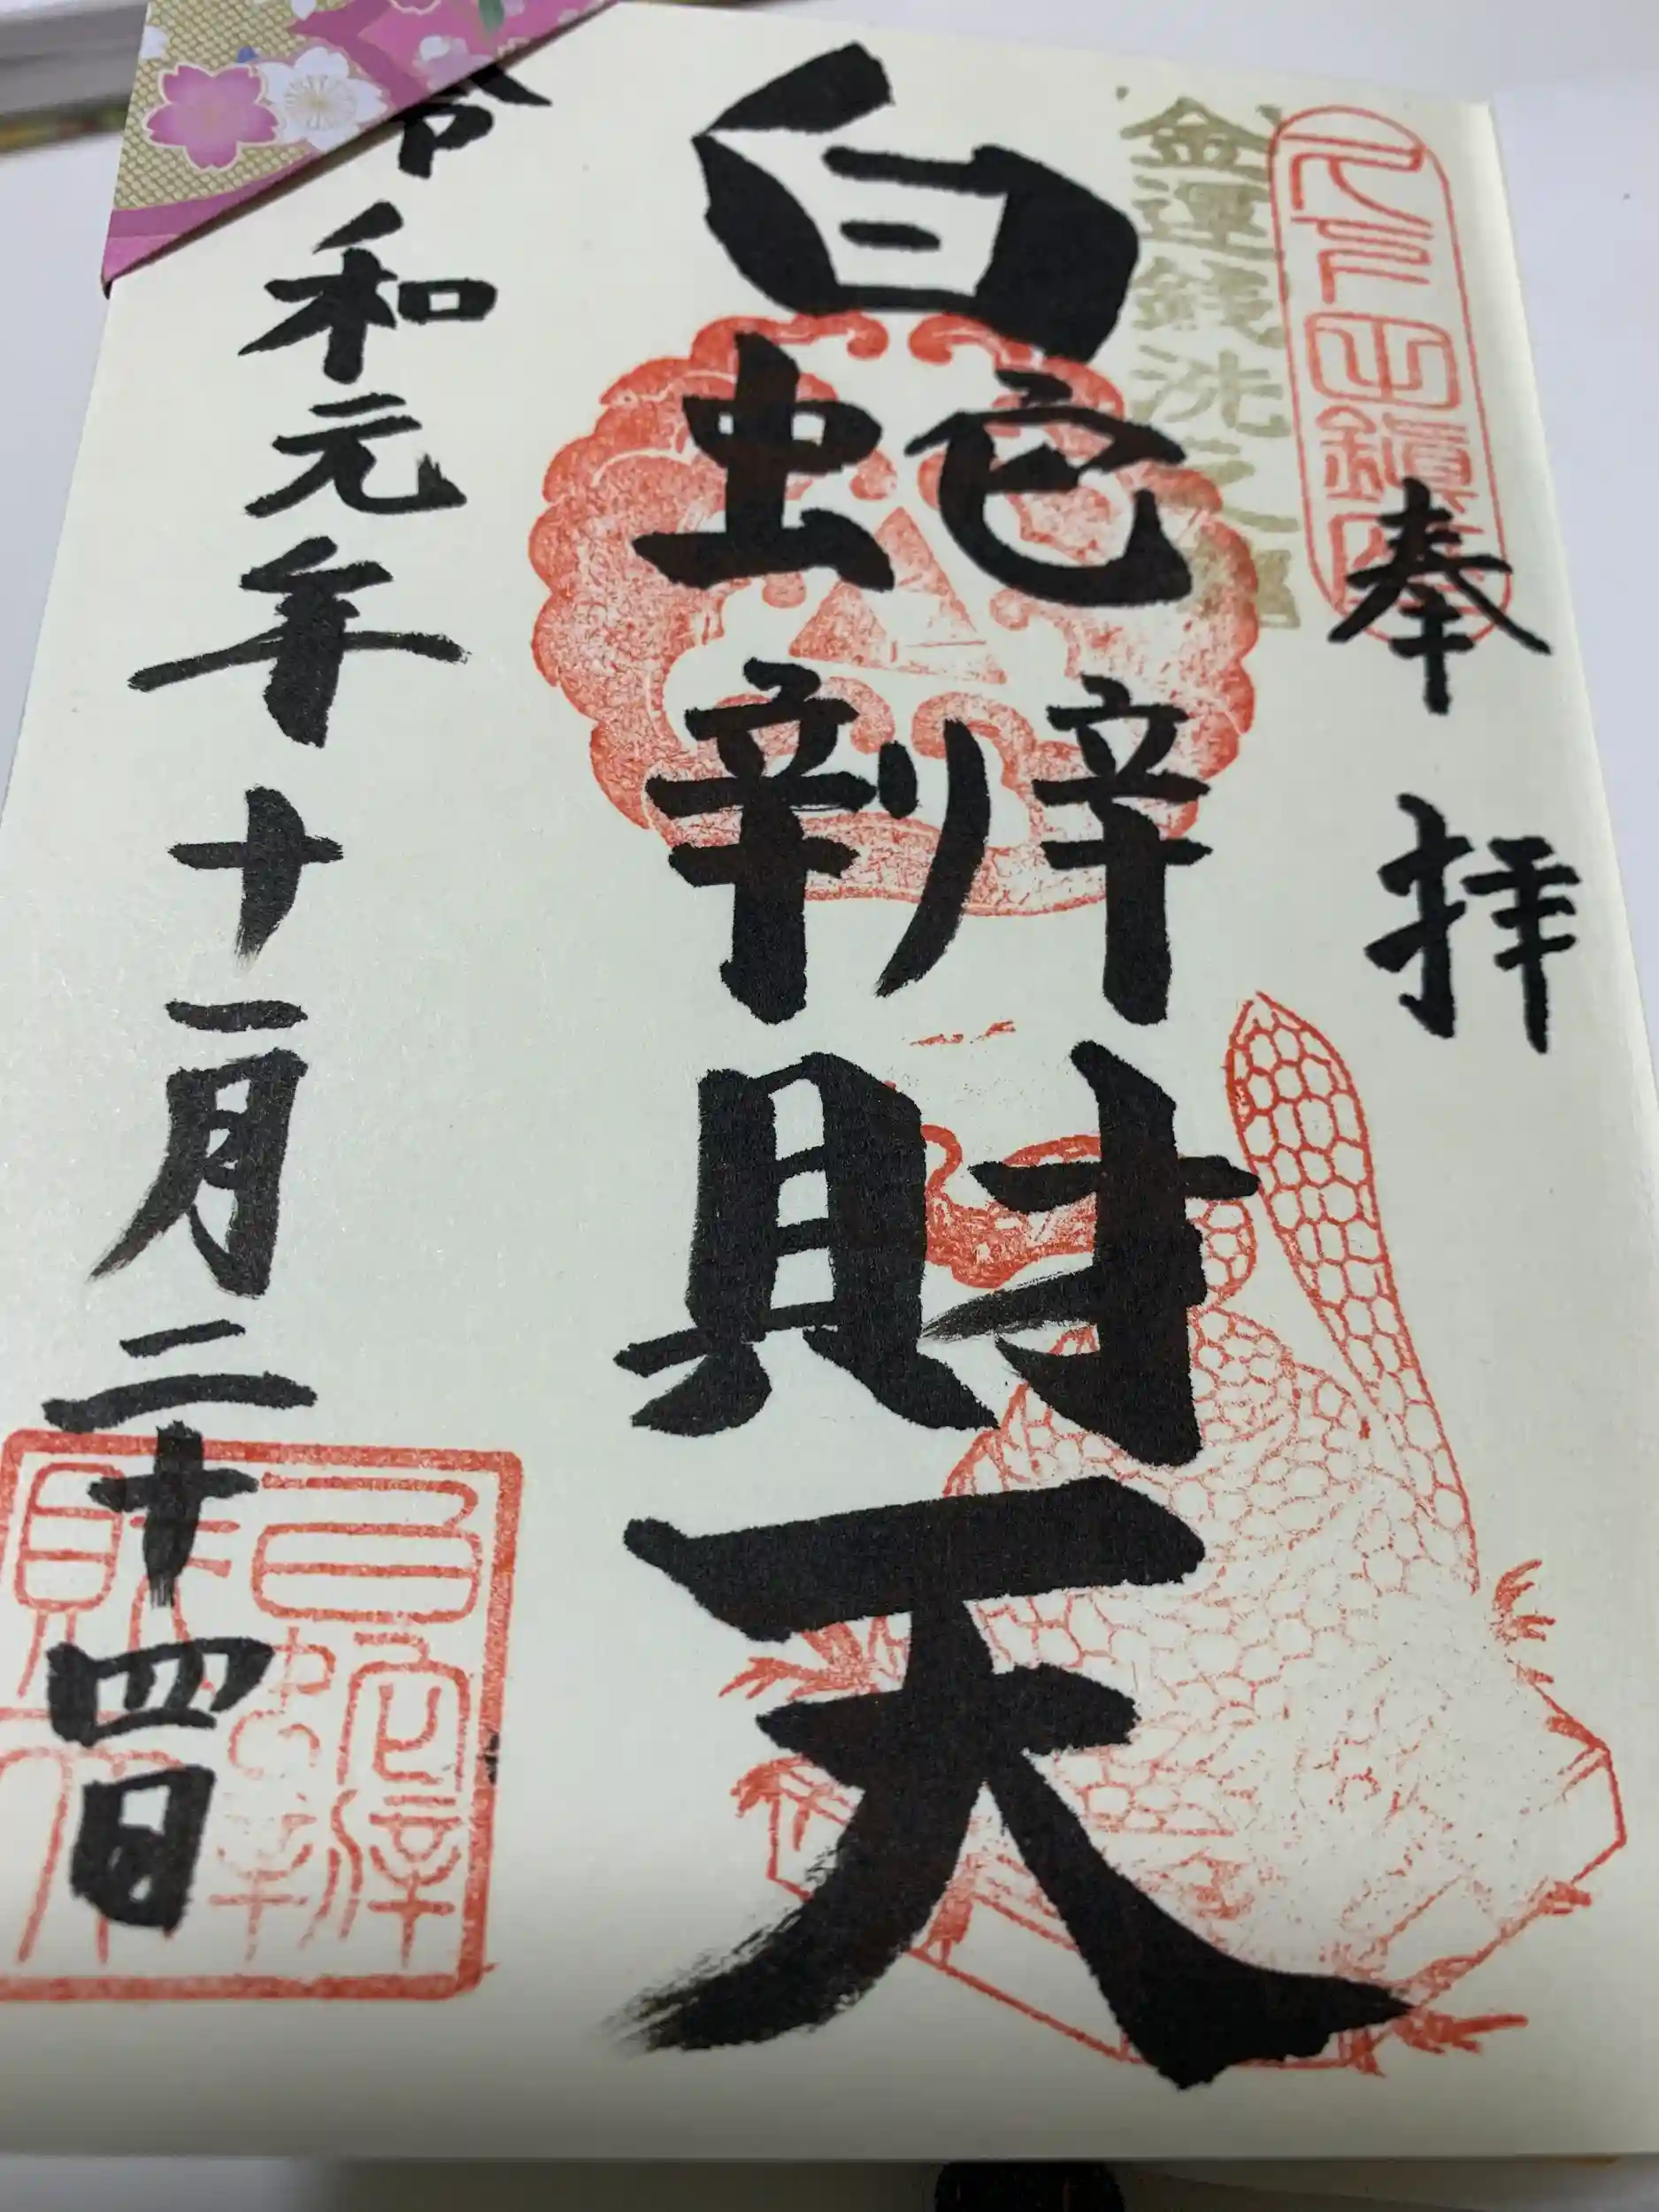 奉拝
金運銭洗之
白蛇辨財天
令和元年十一月二十四日
白蛇辨財天